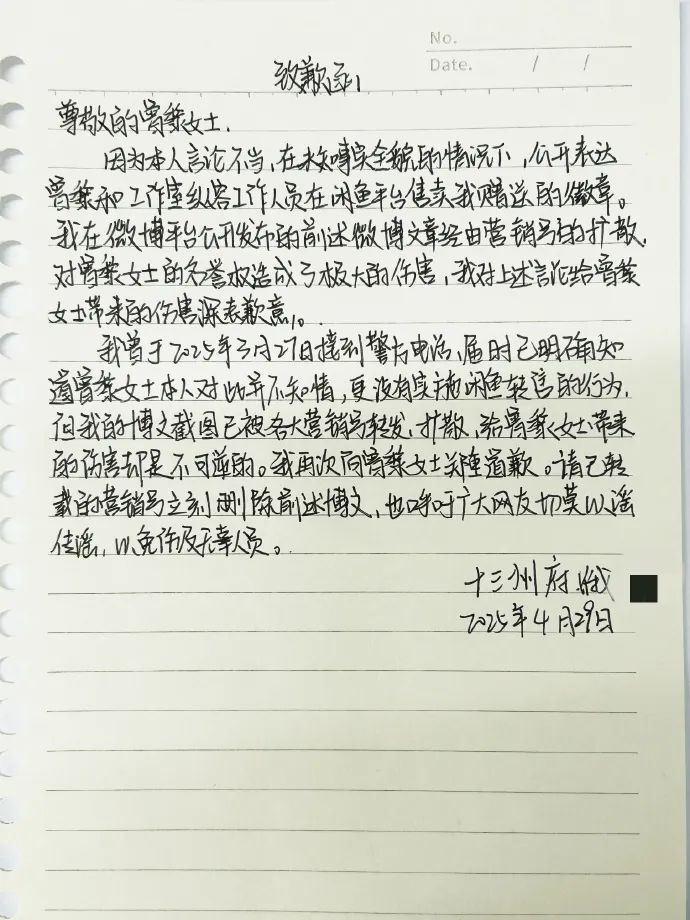 No.
Date. / /
致歉函
尊敬的曾黎女士.
因为本人言论不当,在未知事实全貌的情况下,公开表达
曾黎和工作室纵容工作人员在闲鱼平台售卖我赠送的徽章。
我在微博平台公开发布的前述微博文章经由营销号的扩散,
对曾黎女士的名誉权造成了极大的伤害,我对上述言论给曾黎
女士带来的伤害深表歉意。
我曾于2025年3月27日接到警方电话,届时已明确知
道曾黎女士本人对此并不知情,更没有实施闲鱼转售的行为,
但我的博文截图已被各大营销号转发、扩散,给曾黎女士带来
的伤害却是不可逆的。我再次向曾黎女士关道歉。请已转
载的营销号立刻删除前述博文,也呼吁广大网友切莫以谣
传谣,以免伤及无辜人员。
十三州府
2025年4月29日